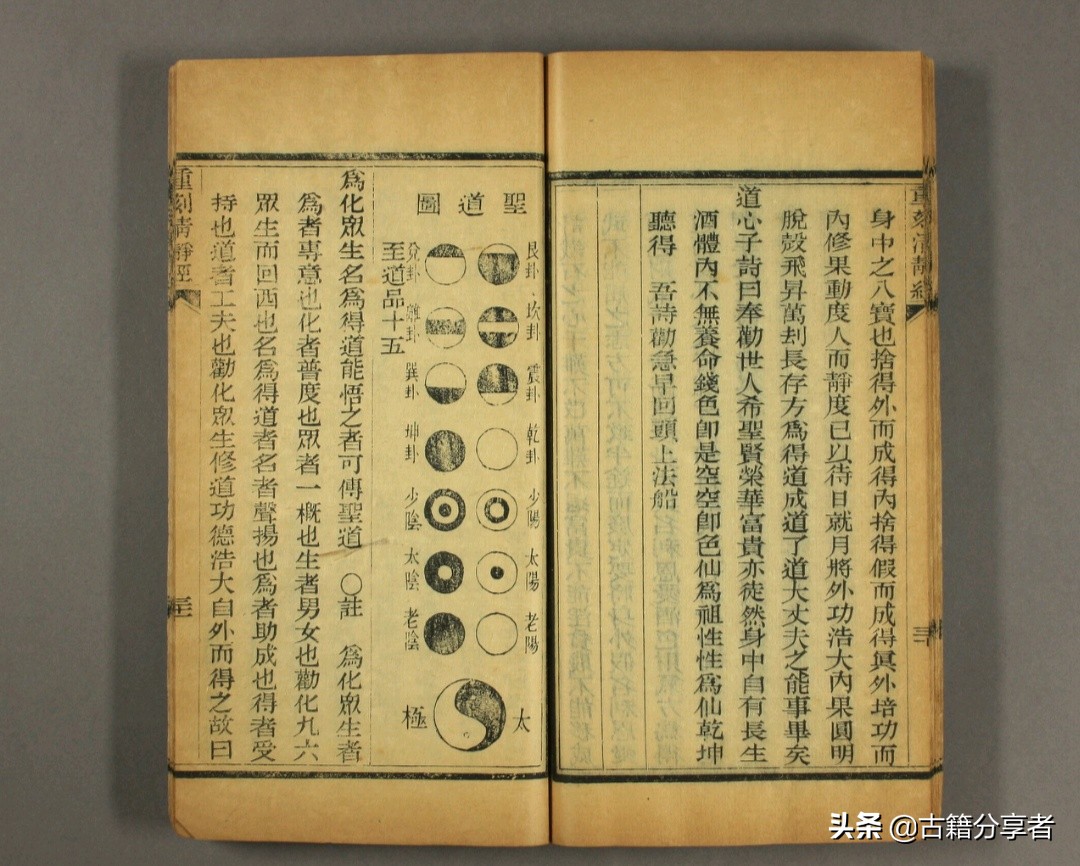 重刻清靜經
身中之八寶也捨得外而成得內捨得假而成得眞外培功而
內修果動度人而靜度已以待日就月將外功浩大內果圓明
脫殼飛昇萬刦長存方爲得道成道了道大丈夫之能事畢矣
道心子詩曰奉勸世人希聖賢榮華富貴亦徒然身中自有長生
酒體內不無養命錢色卽是空空卽色仙爲祖性性爲仙乾坤
聽得 吾詩勸急早回頭上法船
聖道圖
艮卦
坎卦
震卦
乾卦
少陽
太陽
老陽
兌卦
離卦
巽卦
坤卦
少陰
太陰
老陰
太極
至道品十五
爲化眾生名爲得道能悟之者可傳聖道 ○註 爲化眾生者
爲者專意也化者普度也眾者一概也生者男女也勸化九六
眾生而回西也名爲得道者名者聲揚也爲者助成也得者受
持也道者工夫也勸化眾生修道功德浩大自外而得之故曰
重刻清靜經
头条 @古籍分享者